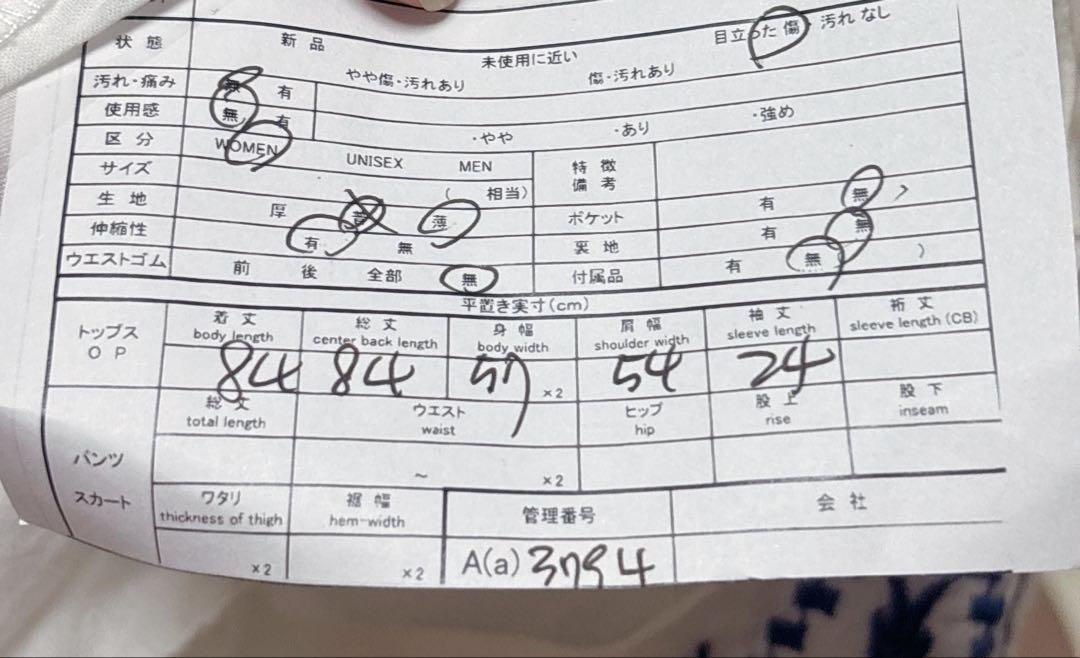 状態 新品 未使用に近い 目立った傷・汚れなし
やや傷・汚れあり 傷・汚れあり
汚れ・痛み 無 有
使用感 無 有 ・やや ・あり ・強め
区分 WOMEN UNISEX MEN
サイズ ( 相当) 特徴備考
生地 厚 普 薄 ポケット 有 無
伸縮性 有 無 裏地 有 無
ウエストゴム 前 後 全部 無 付属品 有 無 )
平置き実寸(cm)
トップス OP 着丈 総丈 身幅 肩幅 袖丈 裄丈
body length center back length body width shoulder width sleeve length sleeve length (CB)
84 84 57 ×2 54 24
総丈 ウエスト ヒップ 股上 股下
total length waist hip rise inseam
パンツ ~ ×2
スカート ワタリ 裾幅 管理番号 会社
thickness of thigh hem-width
×2 ×2 A(a) 3794